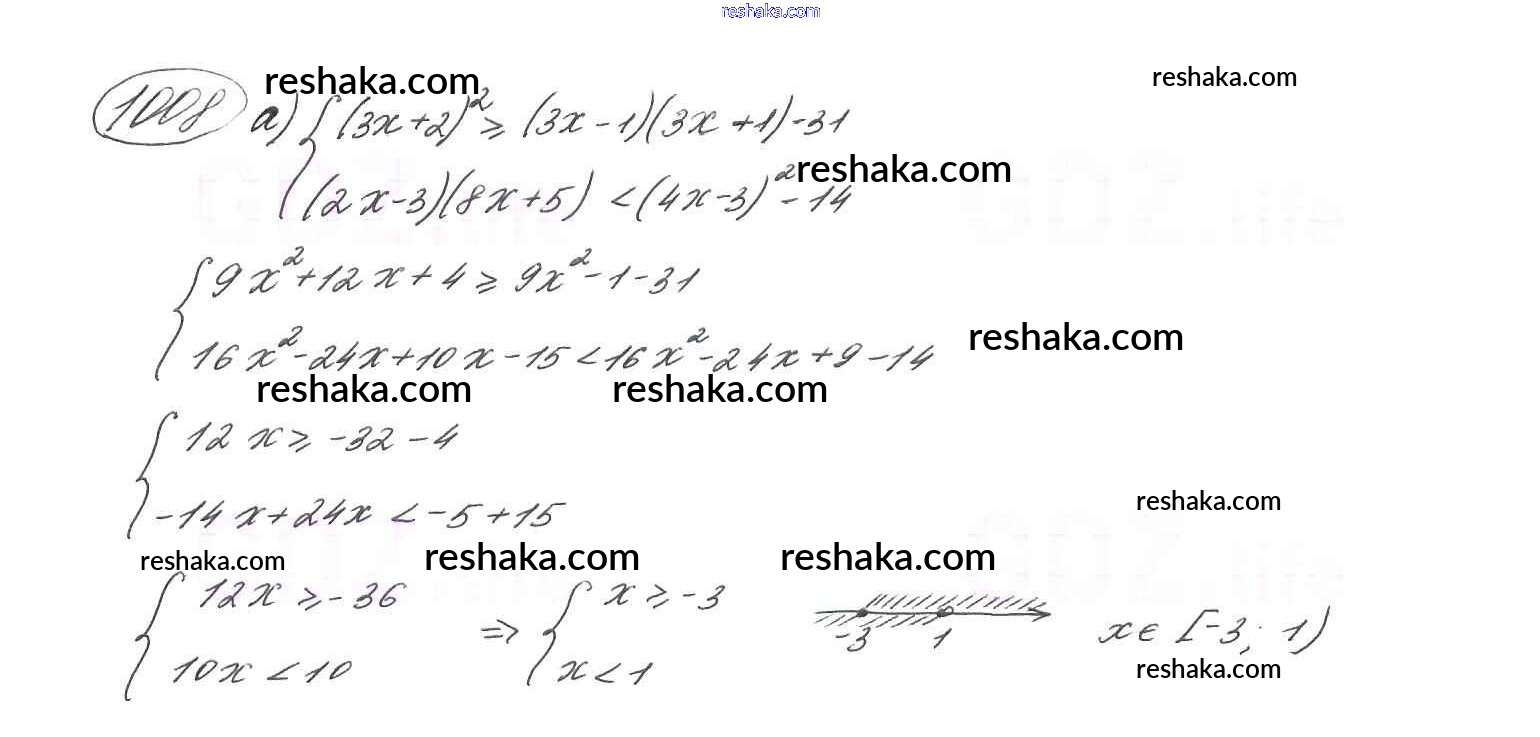 reshaka.com
1008 а) { (3x+2)² ≥ (3x-1)(3x+1)-31
reshaka.com reshaka.com
(2x-3)(8x+5) < (4x-3)² - 14
reshaka.com
{ 9x²+12x+4 ≥ 9x²-1-31
16x²-24x+10x-15 < 16x²-24x+9-14
reshaka.com
reshaka.com reshaka.com
{ 12x ≥ -32-4
-14x+24x < -5+15
reshaka.com
reshaka.com reshaka.com reshaka.com
{ 12x ≥ -36 ⇒ { x ≥ -3
10x < 10 x < 1
-3 1 x ∈ [-3; 1)
reshaka.com